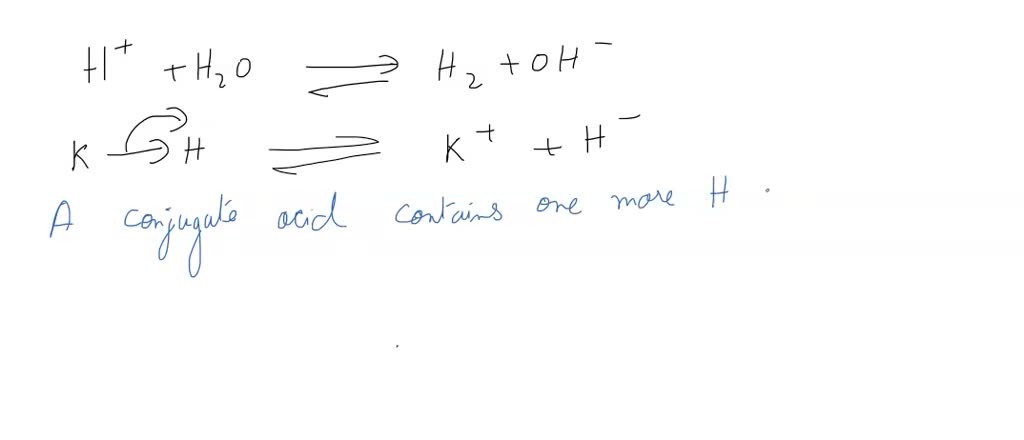 H⁺ + H₂O ⇌ H₂ + OH⁻
K → H ⇌ K⁺ + H⁻
A conjugate acid contains one more H .